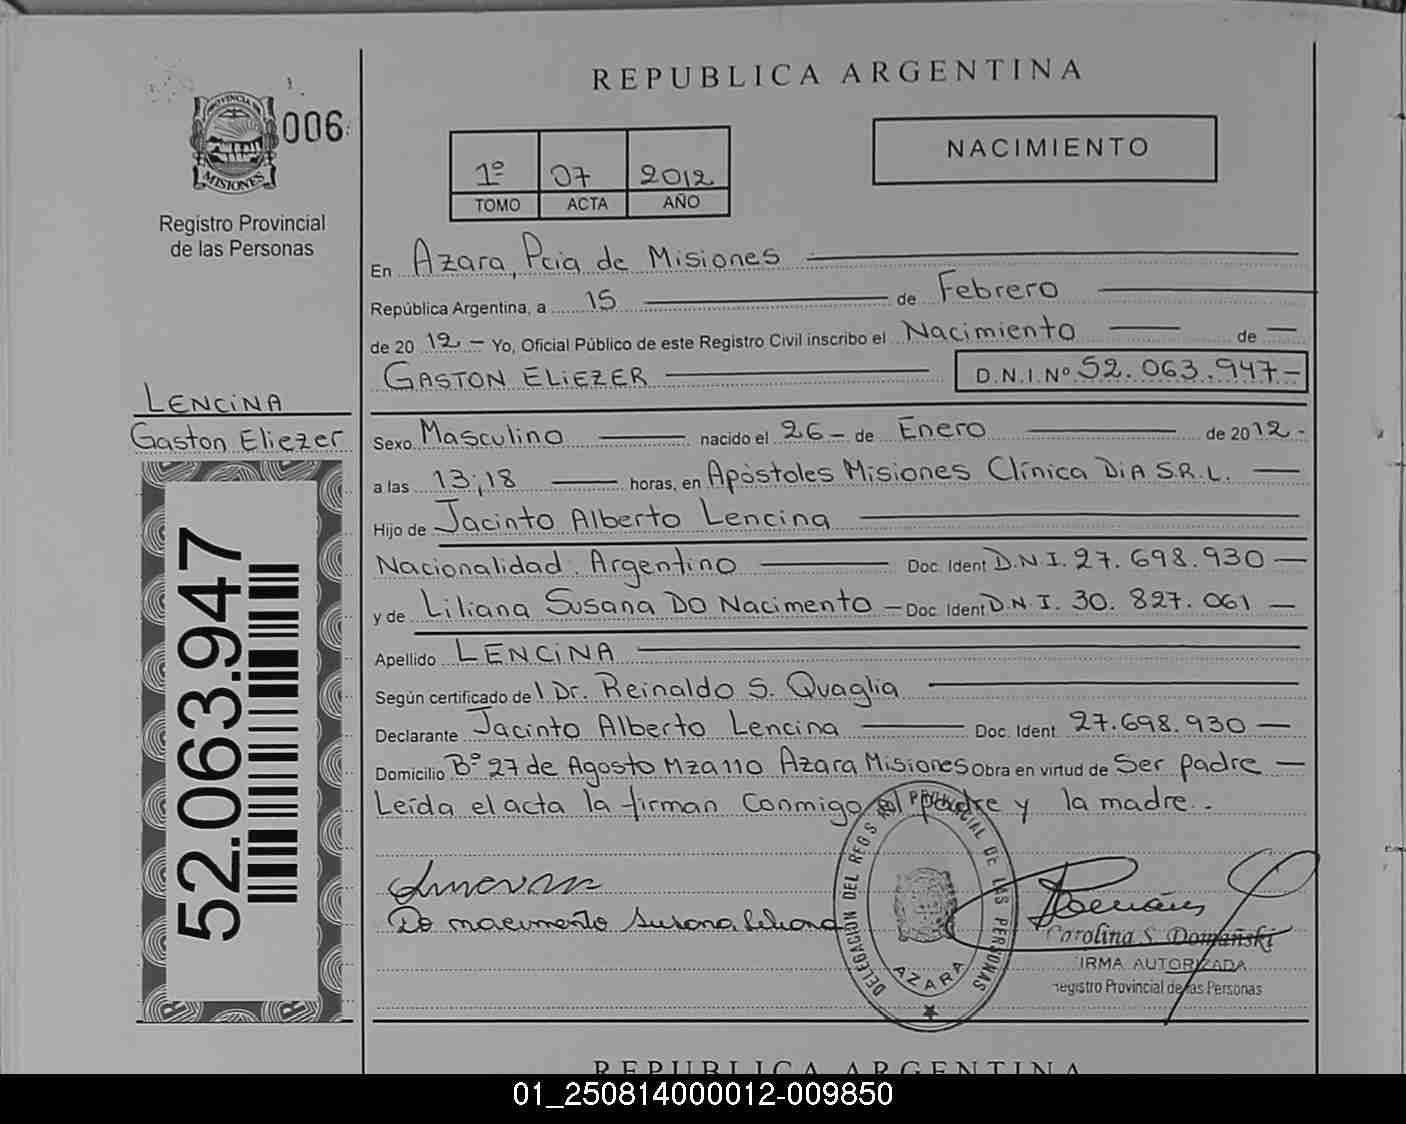 REPUBLICA ARGENTINA
PROVINCIA
MISIONES
006
Registro Provincial
de las Personas
NACIMIENTO
1º 07 2012
TOMO ACTA AÑO
En Azara, Pcia de Misiones
República Argentina, a 15 de Febrero
de 20 12 - Yo, Oficial Público de este Registro Civil inscribo el Nacimiento de
GASTON ELIEZER D.N.I. Nº 52.063.947-
LENCINA
Gaston Eliezer
Sexo Masculino nacido el 26 - de Enero de 2012-
a las 13:,18 horas, en Apóstoles Misiones Clínica DiA S.R.L.
Hijo de Jacinto Alberto Lencina
Nacionalidad: Argentino Doc. Ident D.N.I. 27.698.930
y de Liliana Susana DO Nacimento - Doc. Ident D.N.I. 30.827.061
Apellido LENCINA
Según certificado del Dr. Reinaldo S. Quaglia
Declarante Jacinto Alberto Lencina Doc. Ident. 27.698.930
Domicilio Bº 27 de Agosto Mza 110 Azara Misiones Obra en virtud de Ser padre
Leída el acta la firman conmigo el padre y la madre.
52.063.947
Do nacimento Susana Liliana
DELEGACION DEL REGIS RO PROVINCIAL DE LAS PERSONAS
AZARA
Carolina S. Domañski
IRMA AUTORIZADA
Registro Provincial de las Personas
REPUBLICA ARGENTINA
01_250814000012-009850